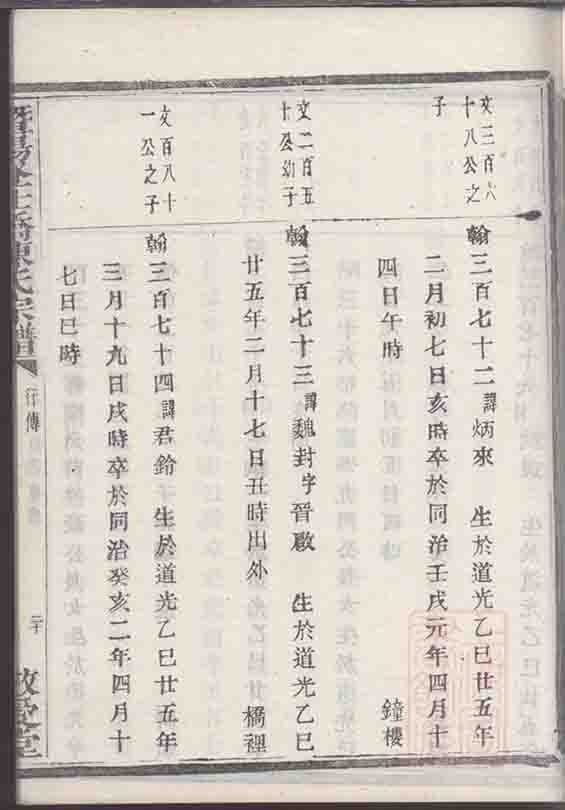 文三百六
十八公之
子
翰三百七十二諱炳來 生於道光乙巳廿五年
二月初七日亥時卒於同治壬戌元年四月十
四日午時 鐘樓
文二百五
十公幼子
翰三百七十三諱魏封字晉啟 生於道光乙巳
廿五年二月十七日丑時出外 橋裡
文百八十
一公之子
翰三百七十四諱君鈴 生於道光乙巳廿五年
三月十九日戌時卒於同治癸亥二年四月十
七日巳時
陳氏宗譜
行傳
二十
敬愛堂